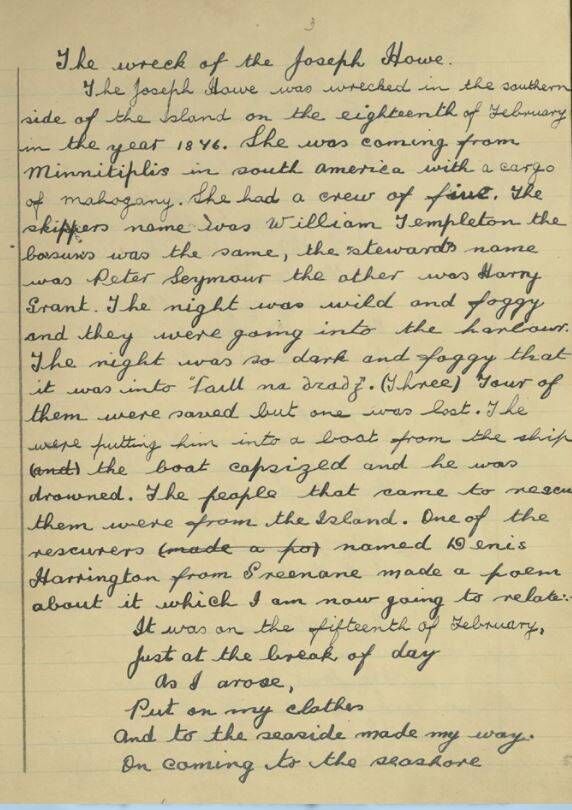 3
The wreck of the Joseph Howe.
The Joseph Howe was wrecked in the southern
side of the island on the eighteenth of February
in the year 1846. She was coming from
Minnitiplis in south america with a cargo
of mahogany. She had a crew of five. The
skippers name was William Templeton the
bosuns was the same, the stewards name
was Peter Seymour the other was Harry
Grant. The night was wild and foggy
and they were going into the harbour.
The night was so dark and foggy that
it was into "Faill na". (Three) Four of
them were saved but one was lost. The
were putting him into a boat from the ship
(and) the boat capsized and he was
drowned. The people that came to rescu
them were from the Island. One of the
rescurers (made a po) named Denis
Harrington from Greenane made a poem
about it which I am now going to relate:-
It was on the fifteenth of February,
Just at the break of day
As I arose,
Put on my clothes
And to the seaside made my way.
On coming to the seashore